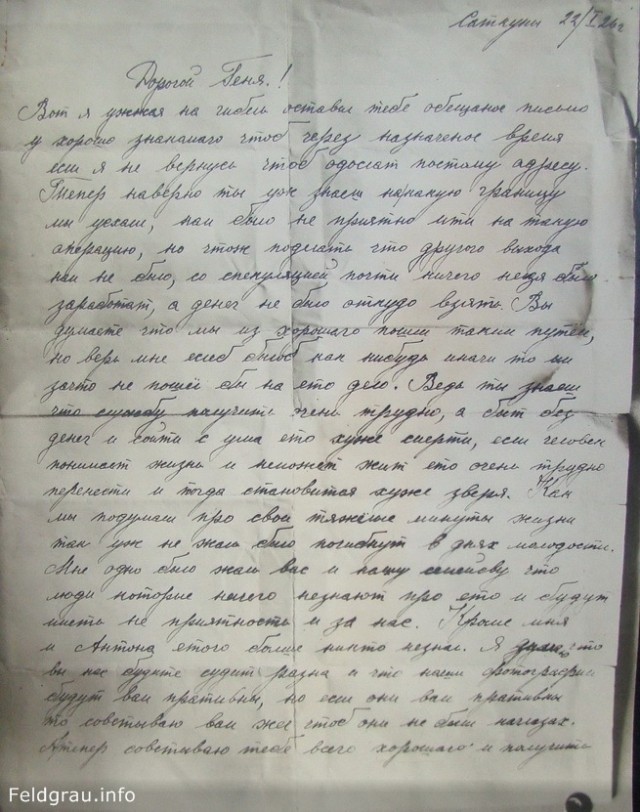 Сатауны 22/I 26 г
Дорогой Геня!
Вот я ужжая на гибель оставил тебе обещаное письмо
у хорошо знакамаго чтоб через назначеное время
если я не вернусь чтоб одослат постому адресу.
Тепер наверно ты уж знаеш накакую границу
мы уехали, нам было не приятно ити на такую
операцию, но чтож поделать что другого выхода
нам не было, со спекуляцией почти ничего незя было
заработат, а денег не было откудо взять. Вы
думаете что мы из хорошаго пошли таким путем,
но верь мне еслеб былоб как нибудь иначи то ни
зачто не пошел бы на ето дело. Ведь ты знаеш
что службу палучить очень трудно, а быт без
денег и сойти с ума ето хуже смерти, если человек
понимает жизнь и неможет жит ето очень трудно
перенести и тогда становится хуже зверя. Как
мы подумали про свои тяжёлые минуты жизни
так уж не жаль было погибнут в днях молодости.
Мне одно было жаль вас и нашу что
люди которые ничего незнают про ето и будут
иметь не приятность и за нас. Кроме мня
и Антона етого больше никто незнал. Я что
вы нас будите судит разна и что наши фотографии
будут вам пративны, но если они вам пративны
то советываю вам жеч чтоб они не были наглазах.
Атепер советываю тебе всего хорошаго и палучить
Feldgrau.info